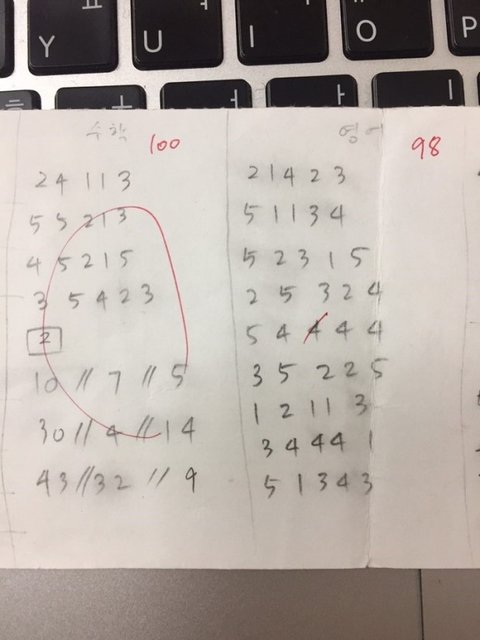 Y
U
I
O
P
수학 100
2 4 1 1 3
5 5 2 1 3
4 5 2 1 5
3 5 4 2 3
2
10 // 7 // 5
30 // 4 // 14
43 // 32 // 9
영어 98
2 1 4 2 3
5 1 1 3 4
5 2 3 1 5
2 5 3 2 4
5 4 4 4 4
3 5 2 2 5
1 2 1 1 3
3 4 4 4 1
5 1 3 4 3